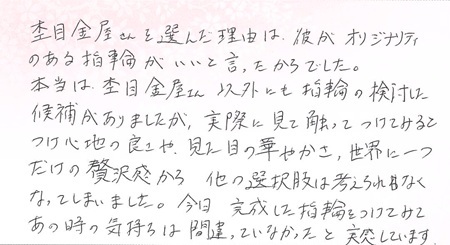 杢目金屋さんを選んだ理由は、彼がオリジナリティ
のある指輪がいいと言ったからでした。
本当は、杢目金屋さん以外にも指輪の検討した
候補がありましたが、実際に見て触ってつけてみると
つけ心地の良さや、見た目の華やかさ、世界に一つ
だけの贅沢感から 他の選択肢は考えられなく
なってしまいました。今日 完成した指輪をつけてみて
あの時の気持ちは間違っていなかったと実感しています